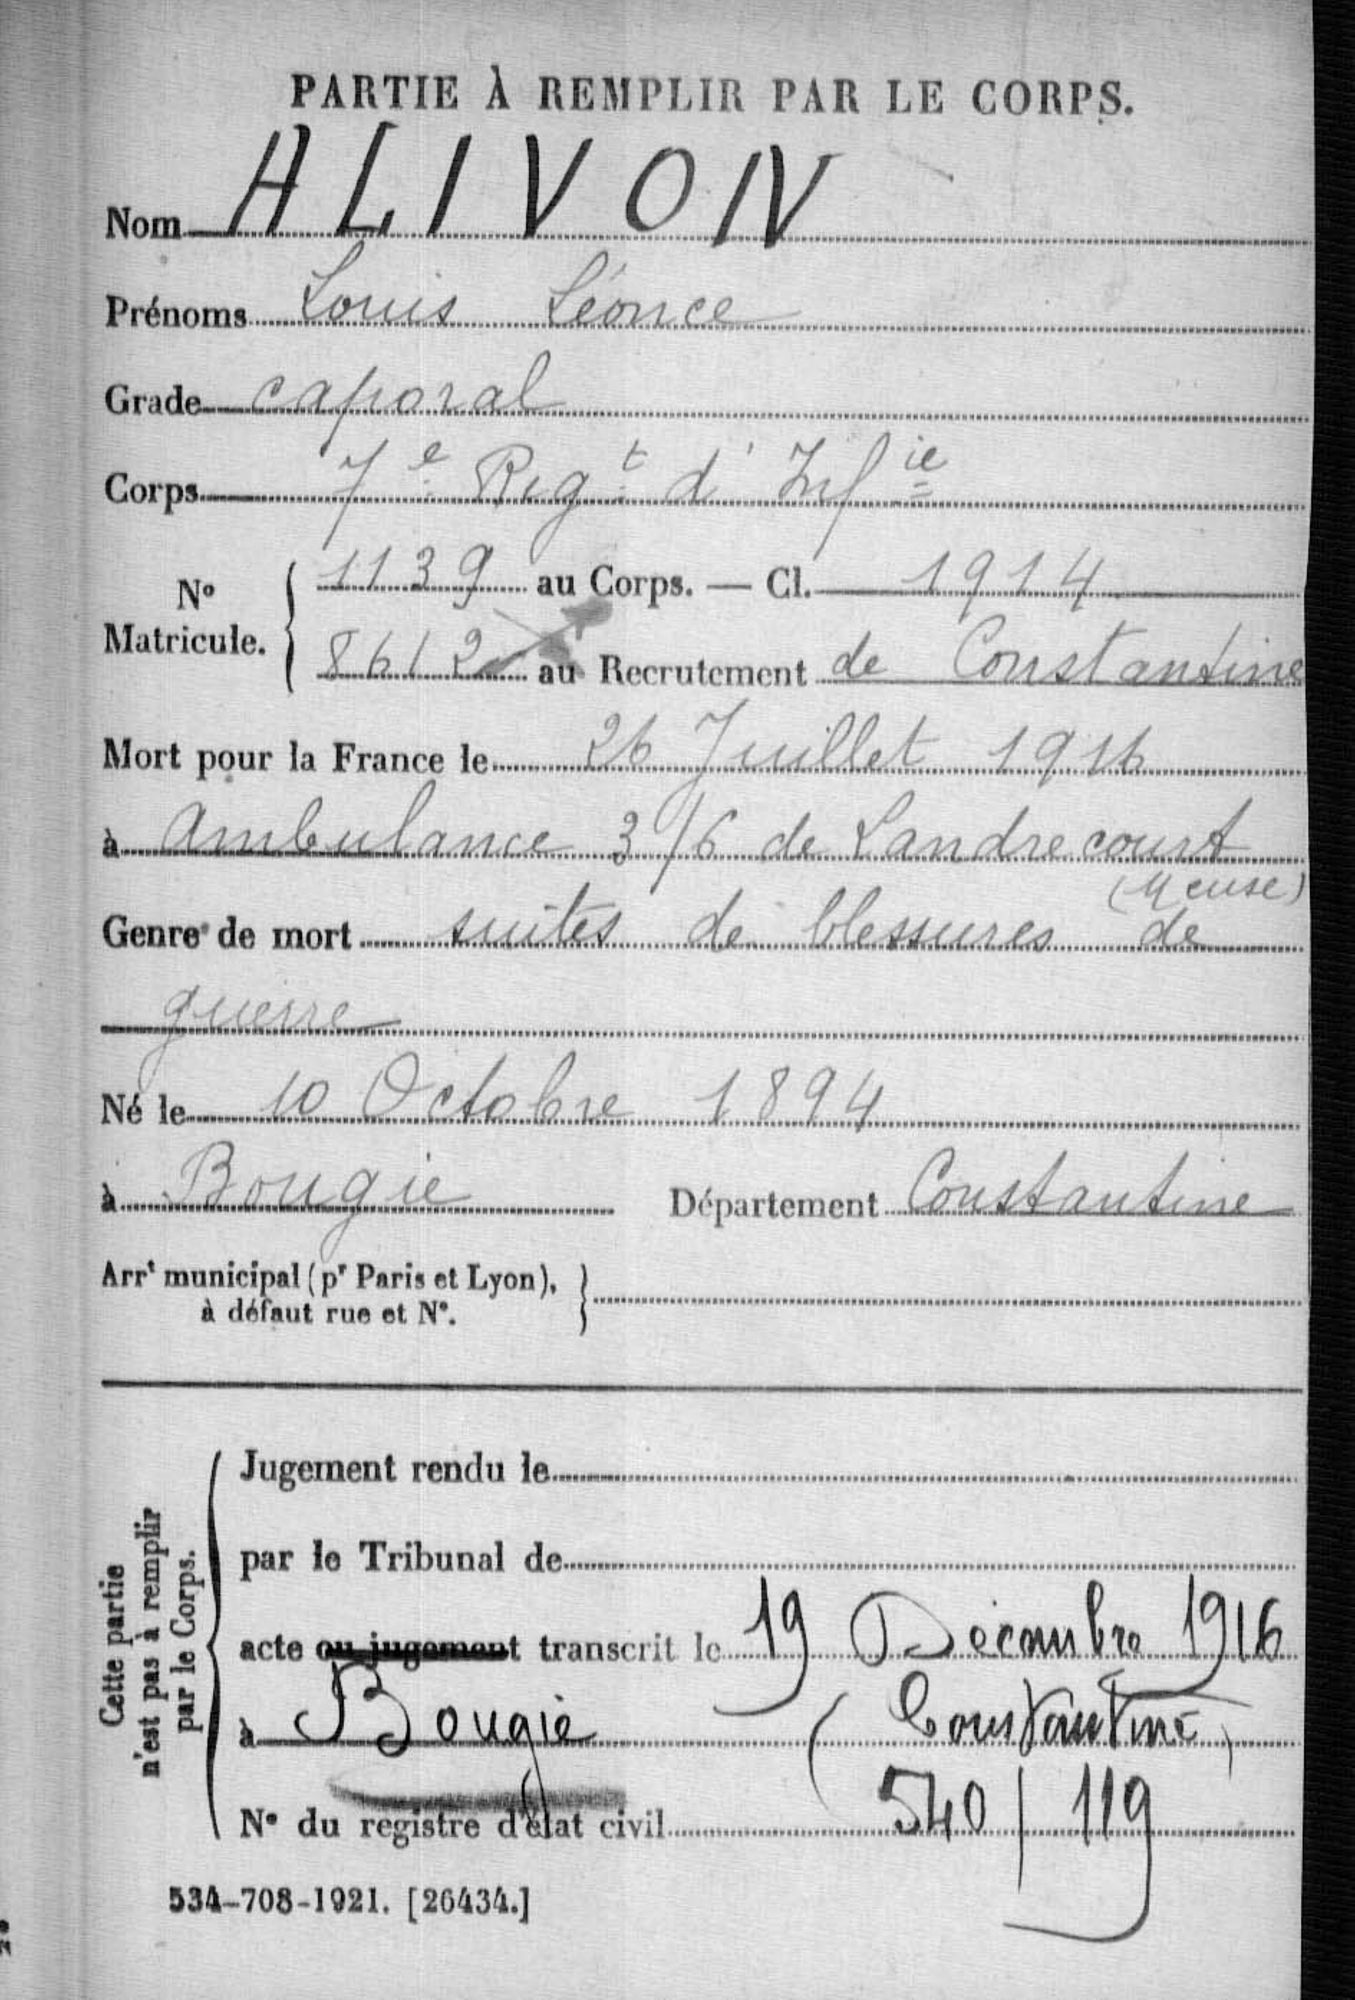 PARTIE À REMPLIR PAR LE CORPS.
Nom ALIVON
Prénoms Louis Léonce
Grade caporal
Corps 7e Regt d'Infie
No Matricule. { 1139 au Corps. — Cl. 1914
8612 au Recrutement de Constantine
Mort pour la France le 26 Juillet 1916
à Ambulance 3/6 de Landrecourt
(Meuse)
Genre de mort suites de blessures de
guerre
Né le 10 Octobre 1894
à Bougie Département Constantine
Arrt municipal (pr Paris et Lyon), }
à défaut rue et No.
Cette partie
n'est pas à remplir
par le Corps.
Jugement rendu le
par le Tribunal de
acte ou jugement transcrit le 19 Décembre 1916
à Bougie (Constantine)
No du registre d'état civil 540/119
534-708-1921. [26434.]